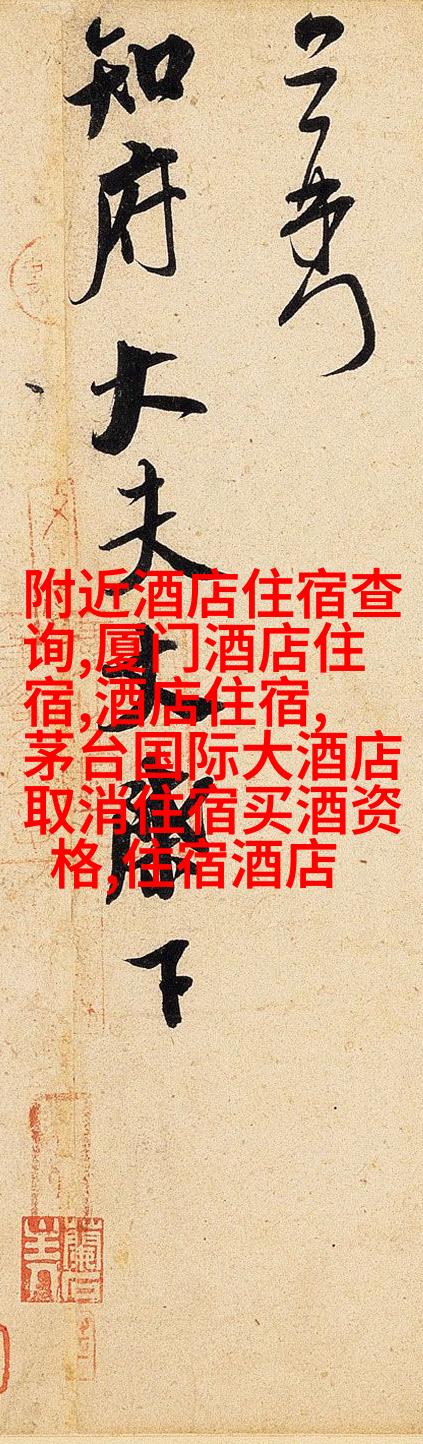 知府大夫丈下
附近酒店住宿查
询,厦门酒店住
宿,酒店住宿,
茅台国际大酒店
取消住宿买酒资
格,住宿酒店